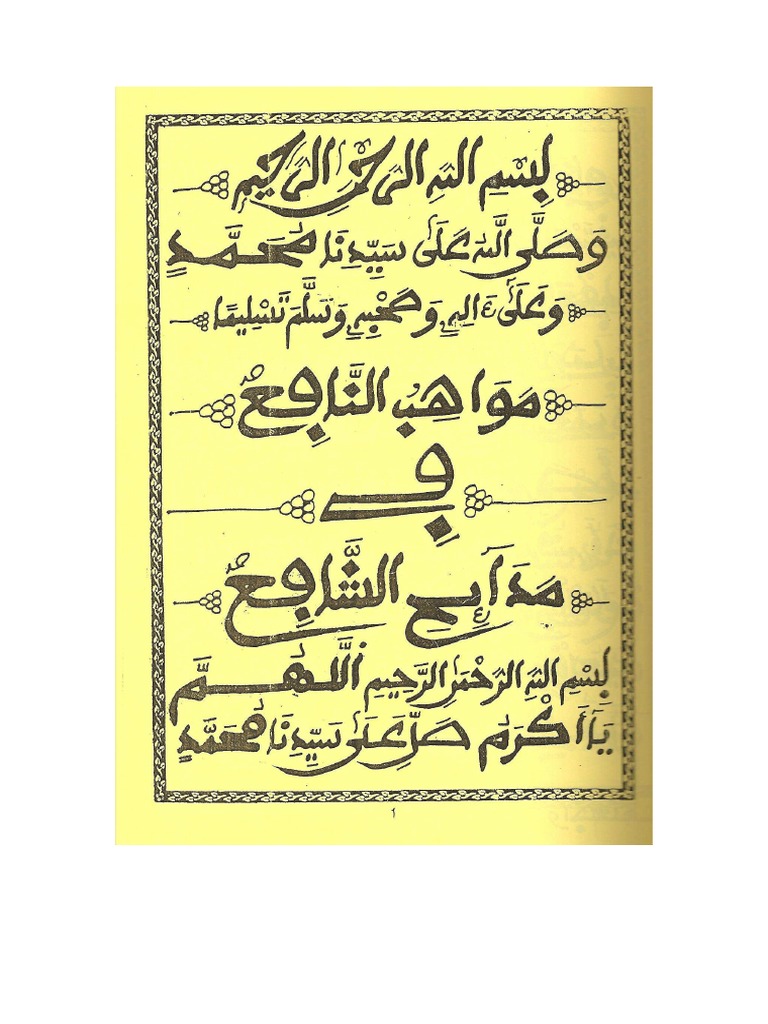 بِسْمِ اللهِ الرَّحْمٰنِ الرَّحِيمِ
وَصَلَّى اللهُ عَلَى سَيِّدِنَا مُحَمَّدٍ
وَعَلَىٰ ءَالِهِ وَصَحْبِهِ وَسَلَّمَ تَسْلِيمًا
مَوَاهِبُ النَّافِعُ
فِے
مَدَآئِحِ الشَّافِعُ
بِسْمِ اللهِ الرَّحْمَٰنِ الرَّحِيمِ اللَّهُمَّ
يَا أَكْرَمُ صَلِّ عَلَى سَيِّدِنَا مُحَمَّدٍ
١